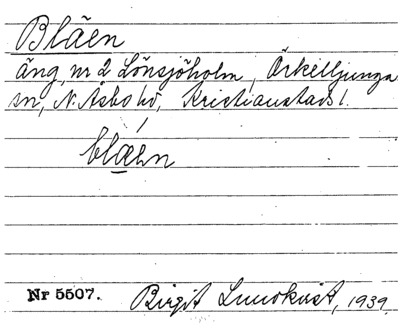 Bläen
äng, nr 2 Lönsjöholm, Örkelljunga
sn, N. Åsbo hd, Kristianstads l.
blæ̀en
Nr 5507. Birgit Lundkvist, 1939.